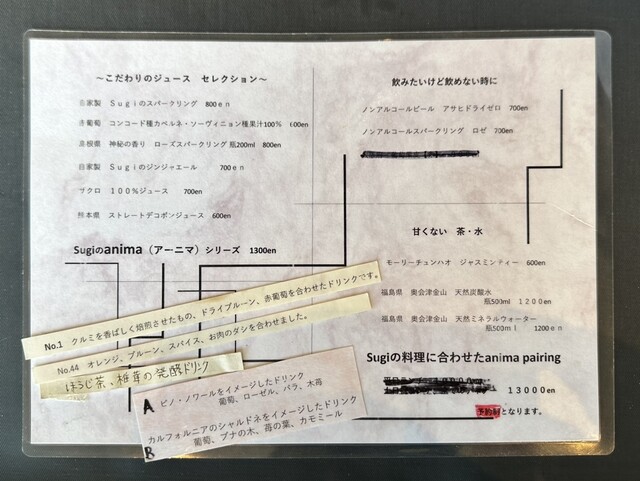 ～こだわりのジュース セレクション～
自家製 Ｓｕｇｉのスパークリング 800ｅｎ
赤葡萄 コンコード種カベルネ・ソーヴィニョン種果汁100％ 600en
島根県 神秘の香り ローズスパークリング 瓶200ml 800en
自家製 Ｓｕｇｉのジンジャエール 700ｅｎ
ザクロ １００％ジュース 700en
熊本県 ストレートデコポンジュース 600en
Sugiのanima（アーニマ）シリーズ 1300en
No.1 クルミを香ばしく焙煎させたもの、ドライプルーン、赤葡萄を合わせたドリンクです。
No.44 オレンジ、プルーン、スパイス、お肉のダシを合わせました。
ほうじ茶、椎茸の発酵ドリンク
A ピノ・ノワールをイメージしたドリンク
葡萄、ローゼル、バラ、木苺
カルフォルニアのシャルドネをイメージしたドリンク
B 葡萄、ブナの木、苺の葉、カモミール
飲みたいけど飲めない時に
ノンアルコールビール アサヒドライゼロ 700en
ノンアルコールスパークリング ロゼ 700en
甘くない 茶・水
モーリーチュンハオ ジャスミンティー 600en
福島県 奥会津金山 天然炭酸水
瓶500ml １２００en
福島県 奥会津金山 天然ミネラルウォーター
瓶500ｍｌ 1200ｅｎ
Sugiの料理に合わせたanima pairing
１３０００en
予約制となります。